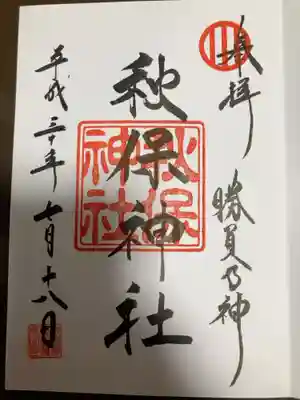 奉拝 勝負の神
秋保神社
秋保
神社
平成三十年七月十八日